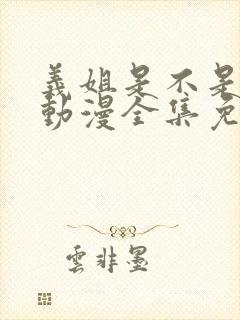 義姐是不是
動漫全集免
雲非墨